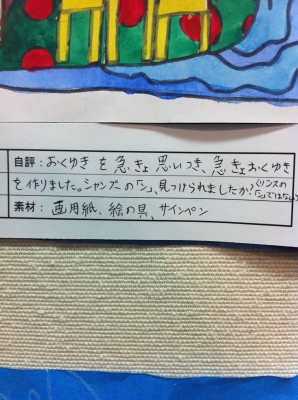 自評：おくゆきを急きょ思いつき、急きょおくゆき
を作りました。シャンプーの「ン」、見つけられましたか？（リンスの「ン」ではない）
素材：画用紙、絵の具、サインペン